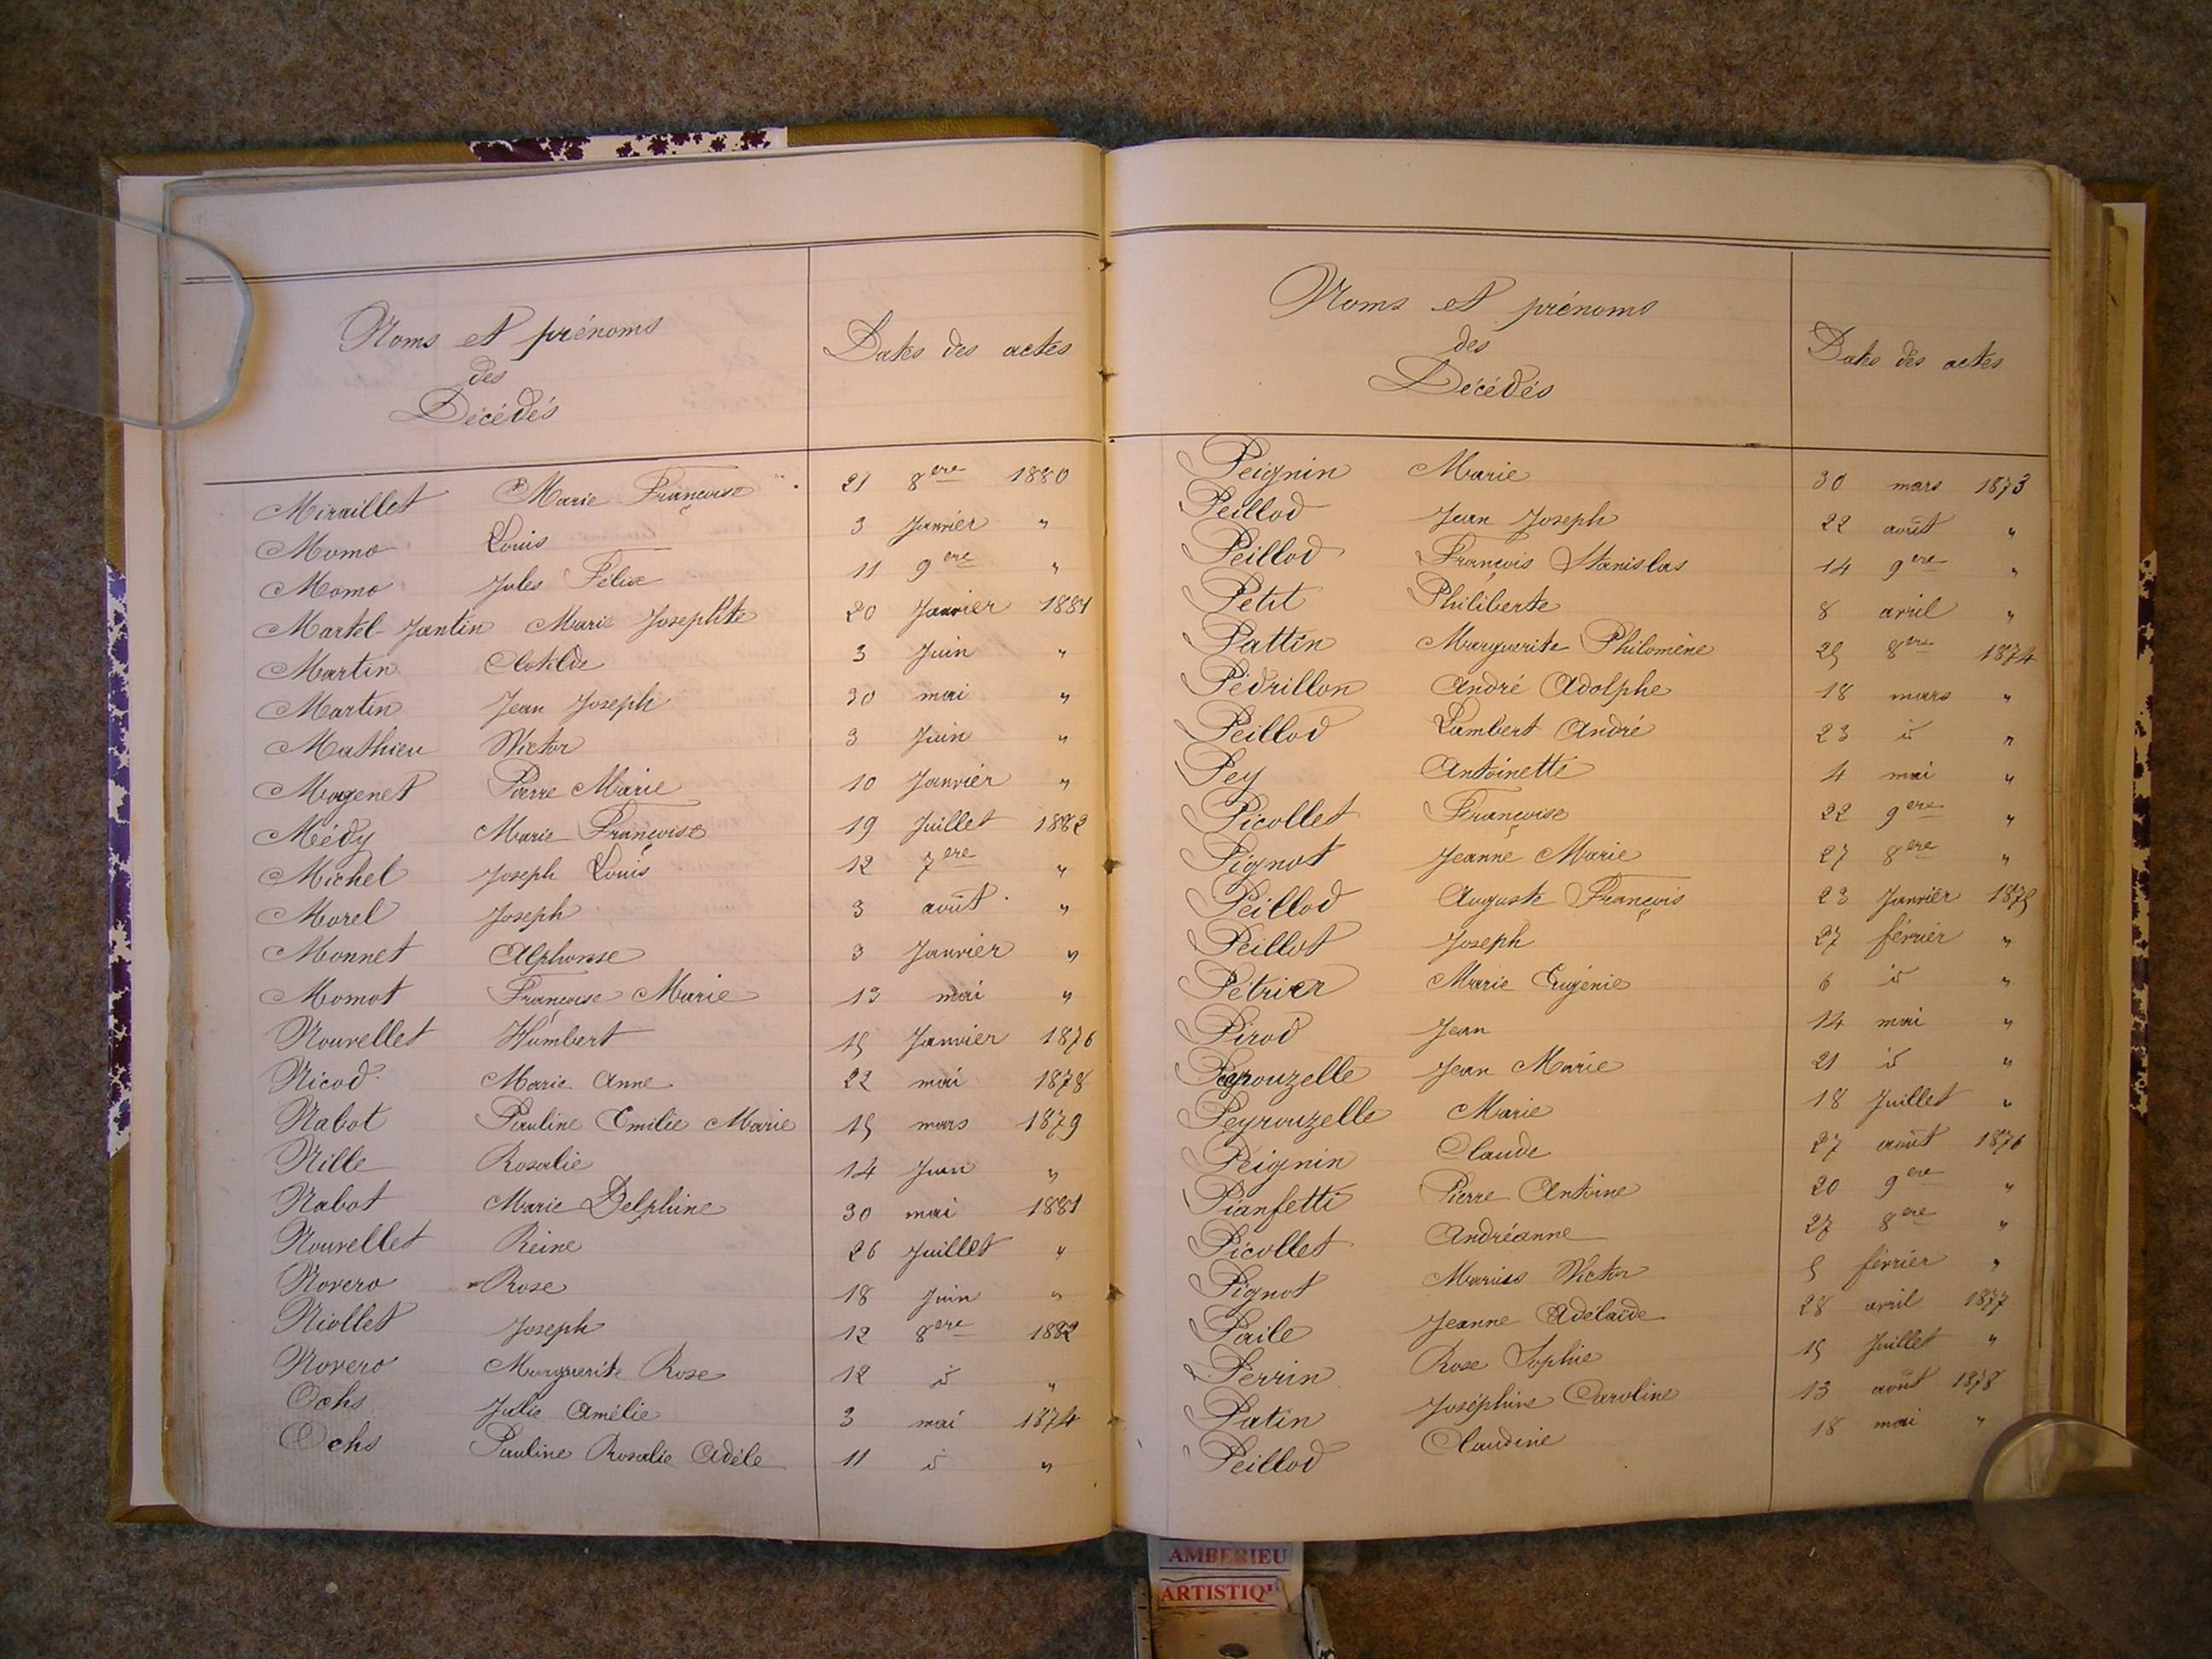 Noms et prénoms
des
Décédés
Dates des actes
Miraillet Marie Françoise 21 8ere 1880
Momo Louis 3 Janvier "
Momo Jules Félix 11 9ere "
Martel-Jantin Marie Josephte 20 Janvier 1881
Martin Clotilde 3 Juin "
Martin Jean Joseph 30 mai "
Mathieu Victor 3 Juin "
Mogenet Pierre Marie 10 Janvier "
Médy Marie Françoise 19 Juillet 1882
Michel Joseph Louis 12 7ere "
Morel Joseph 3 août "
Monnet Alphonse 3 Janvier "
Momot Françoise Marie 13 mai "
Nouvellet Humbert 15 Janvier 1876
Nicod Marie Anne 22 mai 1878
Nabot Pauline Emilie Marie 15 mars 1879
Nille Rosalie 14 Juin "
Nabot Marie Delphine 30 mai 1881
Nouvellet Reine 26 Juillet "
Novero Rose 18 Juin "
Niollet Joseph 12 8ere 1882
Novero Marguerite Rose 12 id "
Ochs Julie Amélie 3 mai 1874
Ochs Pauline Rosalie Adèle 11 id "
Noms et prénoms
des
Décédés
Dates des actes
Peignin Marie 30 mars 1873
Peillod Jean Joseph 22 août "
Peillod François Stanislas 14 9ere "
Petit Philiberte 8 avril "
Pattin Marguerite Philomène 25 8ere 1874
Pédrillon André Adolphe 18 mars "
Peillod Lambert André 23 id "
Pey Antoinette 4 mai "
Picollet Françoise 22 9ere "
Pignot Jeanne Marie 27 8ere "
Peillod Auguste François 23 Janvier 1875
Peillot Joseph 27 février "
Pétrier Marie Eugénie 6 id "
Pirod Jean 14 mai "
Peyrouzelle Jean Marie 21 id "
Peyrouzelle Marie 18 Juillet "
Peignin Claude 27 août 1876
Pianfetti Pierre Antoine 20 9ere "
Picollet Andréanne 27 8ere "
Pignot Marius Victor 5 février "
Paile Jeanne Adélaïde 28 avril 1877
Perrin Rose Sophie 15 Juillet "
Patin Joséphine Caroline 13 août 1878
Peillod Claudine 18 mai "
AMBERIEU
ARTISTIQU